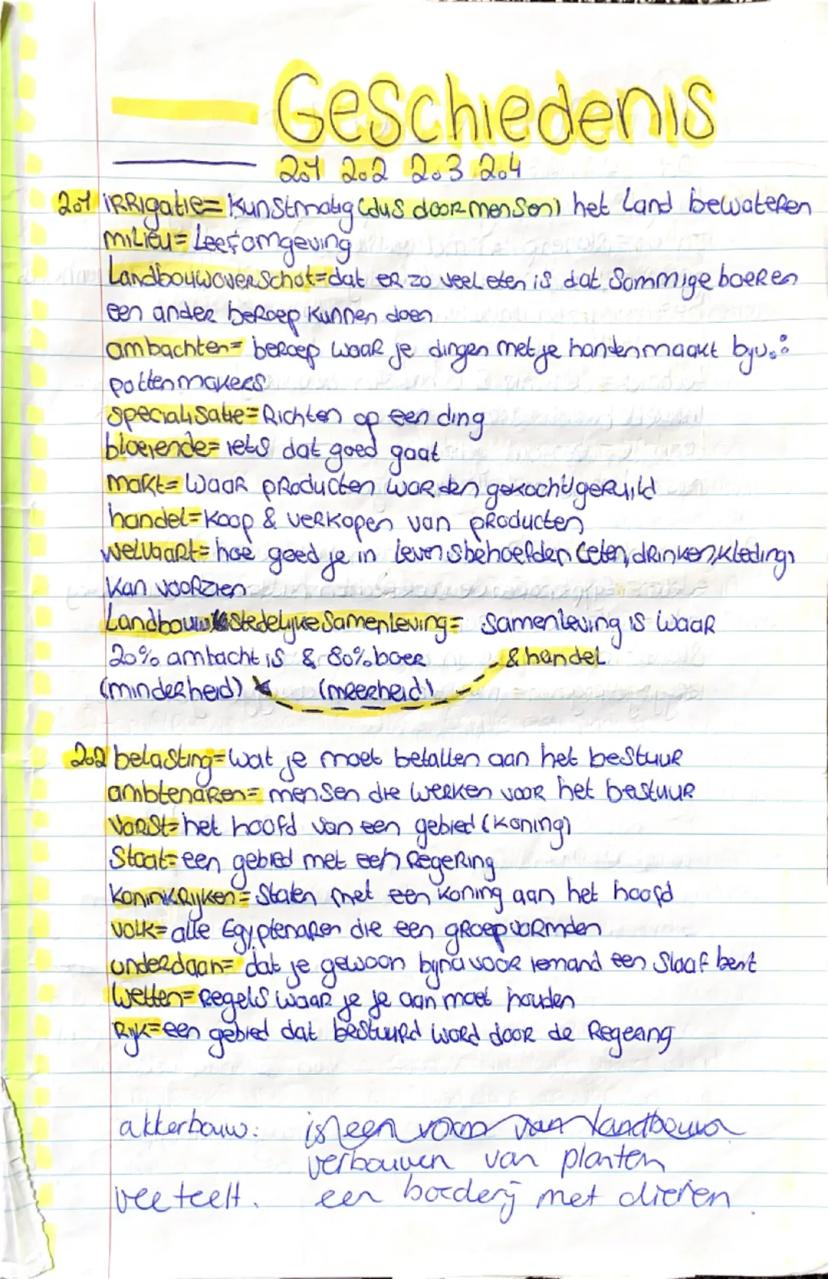 Geschiedenis
2.1 2.2 2.3 2.4
2.1 irrigatie= kunstmatig (dus door mensen) het land bewateren
milieu= leefomgeving
Landbouwoverschot= dat er zo veel eten is dat sommige boeren
een ander beroep kunnen doen
ambachten= beroep waar je dingen met je handen maakt bijv.:
pottenmakers
specialisatie= Richten op een ding
bloeiende= iets dat goed gaat
makt= waar producten worden gekocht/geruild
handel= koop & verkopen van producten
welvaart= hoe goed je in levensbehoefden (eten, drinken, kleding)
kan voorzien
Landbouw stedelijke samenleving= samenleving is waar
20% ambacht is & 80% boer & handel
(minderheid) (meerheid)
2.2 belasting= wat je moet betallen aan het bestuur
ambtenaren= mensen die werken voor het bestuur
vorst= het hoofd van een gebied (koning)
Staat= een gebied met een regering
koninkrijken= Staten met een koning aan het hoofd
volk= alle Egyptenaren die een groep vormden
onderdaan= dat je gewoon bijna voor iemand een slaaf bent
wetten= regels waar je je aan moet houden
Rijk= een gebied dat bestuurd word door de Regering
akkerbouw: is een vorm van landbouw
verbouwen van planten
veeteelt. een boerderij met dieren.